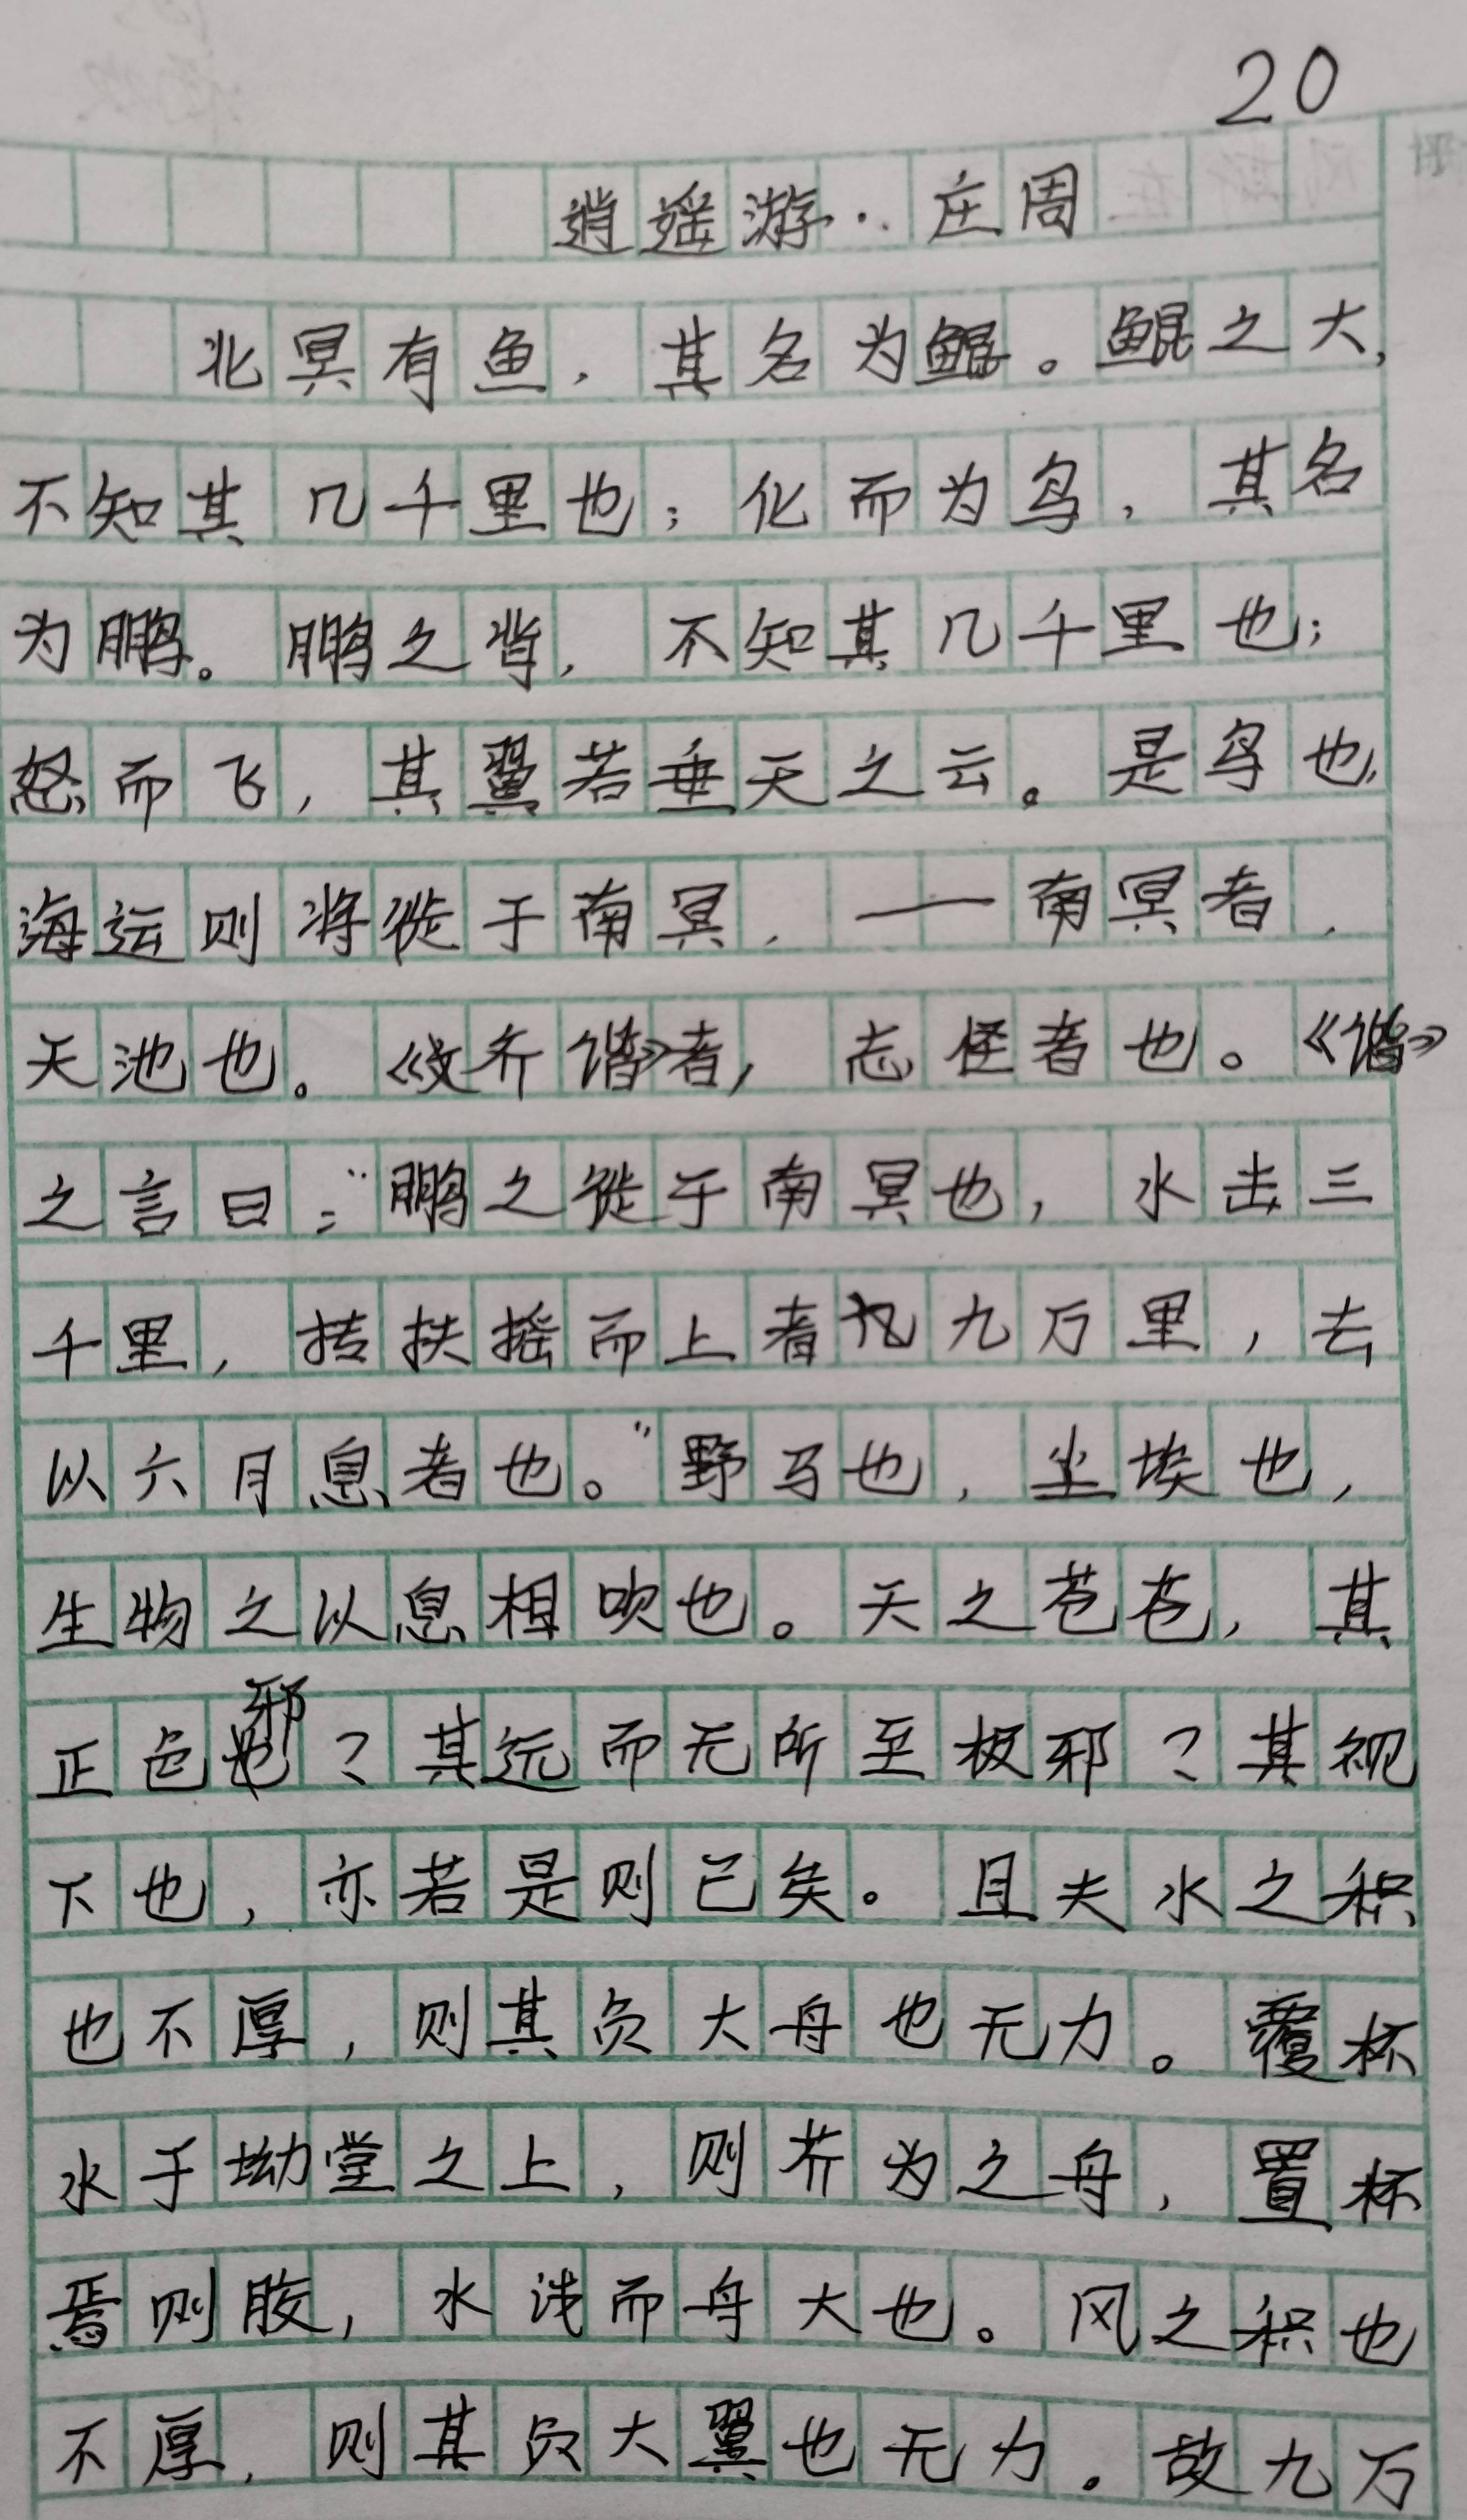 20
逍遥游·庄周
北冥有鱼，其名为鲲。鲲之大，
不知其几千里也；化而为鸟，其名
为鹏。鹏之背，不知其几千里也；
怒而飞，其翼若垂天之云。是鸟也，
海运则将徙于南冥，——南冥者，
天池也。《齐谐》者，志怪者也。《谐》
之言曰：“鹏之徙于南冥也，水击三
千里，抟扶摇而上者九万里，去
以六月息者也。”野马也，尘埃也，
生物之以息相吹也。天之苍苍，其
正色邪？其远而无所至极邪？其视
下也，亦若是则已矣。且夫水之积
也不厚，则其负大舟也无力。覆杯
水于坳堂之上，则芥为之舟，置杯
焉则胶，水浅而舟大也。风之积也
不厚，则其负大翼也无力。故九万